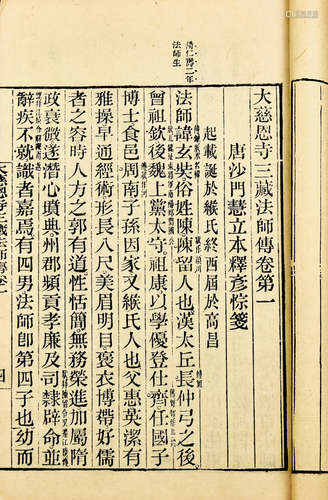 大慈恩寺三藏法師傳卷第一
唐沙門慧立本釋彦悰箋
起載誕於緱氏終西屆於高昌
法師諱玄奘俗姓陳陳留人也漢太丘長仲弓之後
曾祖欽後魏上黨太守祖康以學優登仕齊任國子
博士食邑周南子孫因家又緱氏人也父惠英潔有
雅操早通經術形長八尺美眉明目褒衣博帶好儒
者之容時人方之郭有道性恬簡無務榮進加屬隋
政衰微遂潛心墳典州郡頻貢孝廉及司隸辟命並
辭疾不就識者嘉焉有四男法師卽第四子也幼而
隋仁壽二年
法師生
四